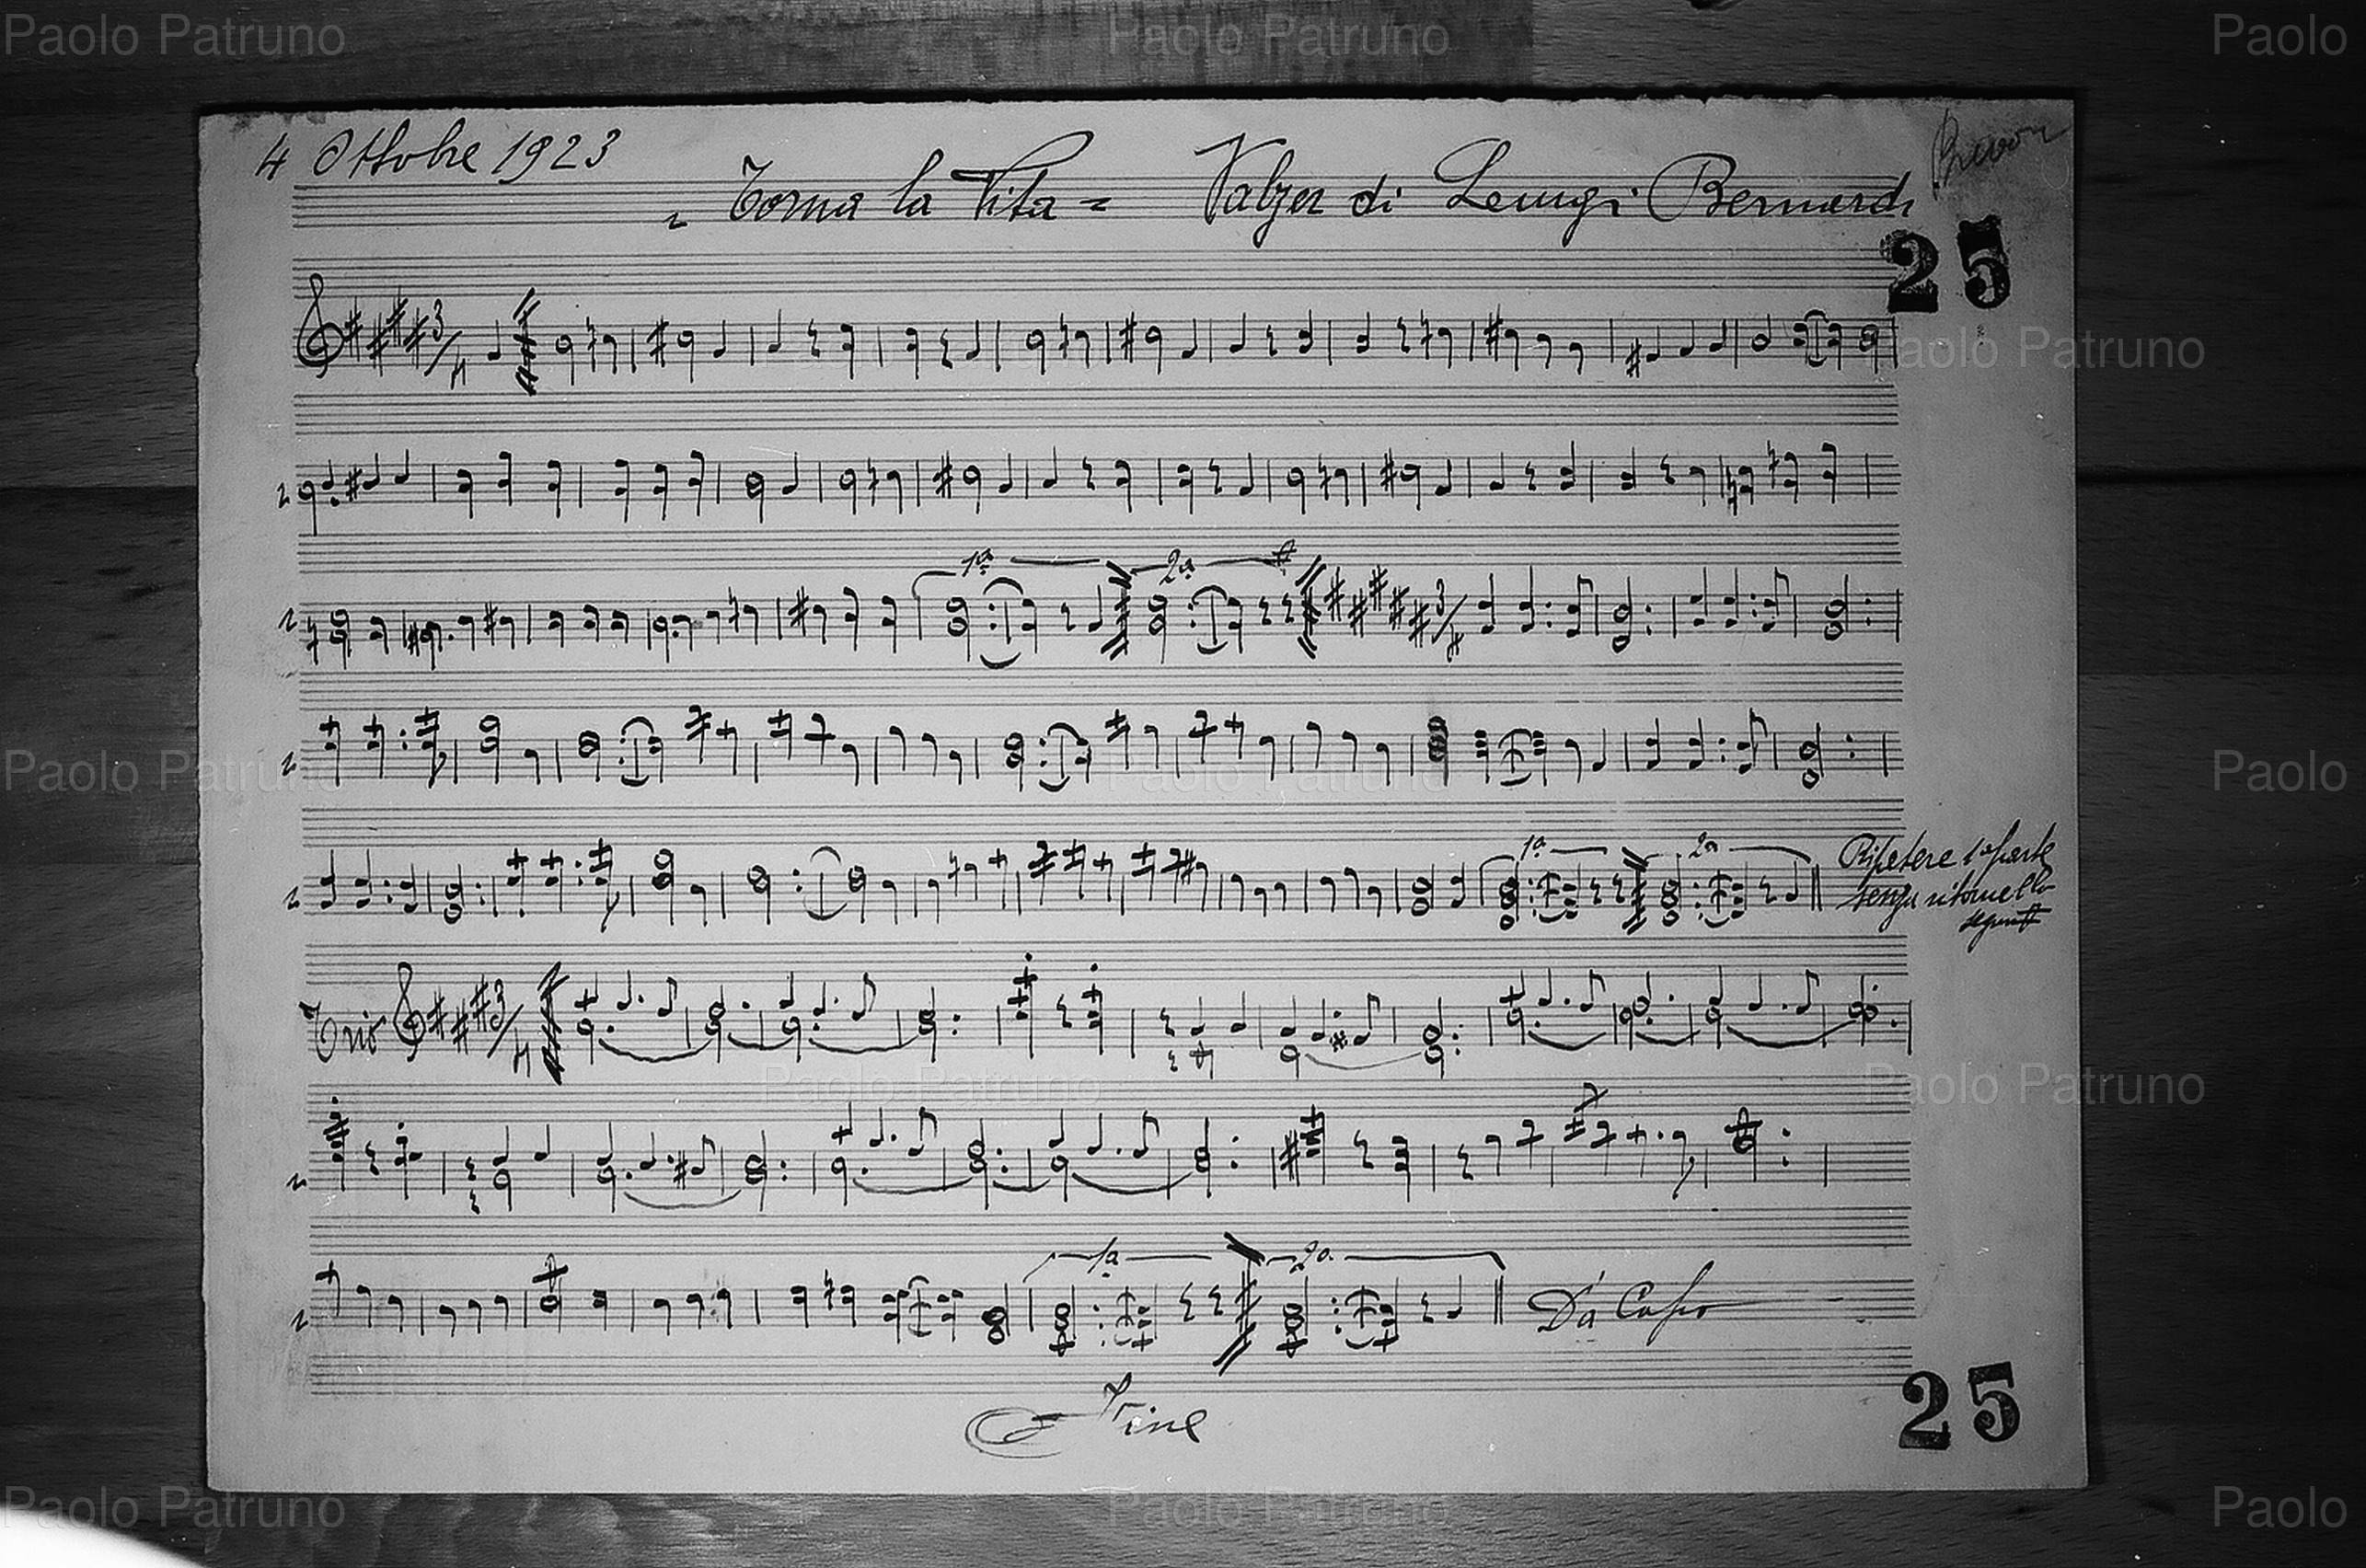 Paolo Patruno Paolo Patruno Paolo
4 Ottobre 1923
"Torna la Vita" Valzer di Luigi Bernardi
25
3/4
Paolo Patruno Paolo Patruno
1a 2a
3/4
Paolo Patruno Paolo Patruno Paolo
1a 2a
Ripetere 1a parte
senza ritornello
Trio 3/4
Paolo Patruno Paolo Patruno
1a 2a
Da Capo
Fine
25
Paolo Patruno Paolo Patruno Paolo